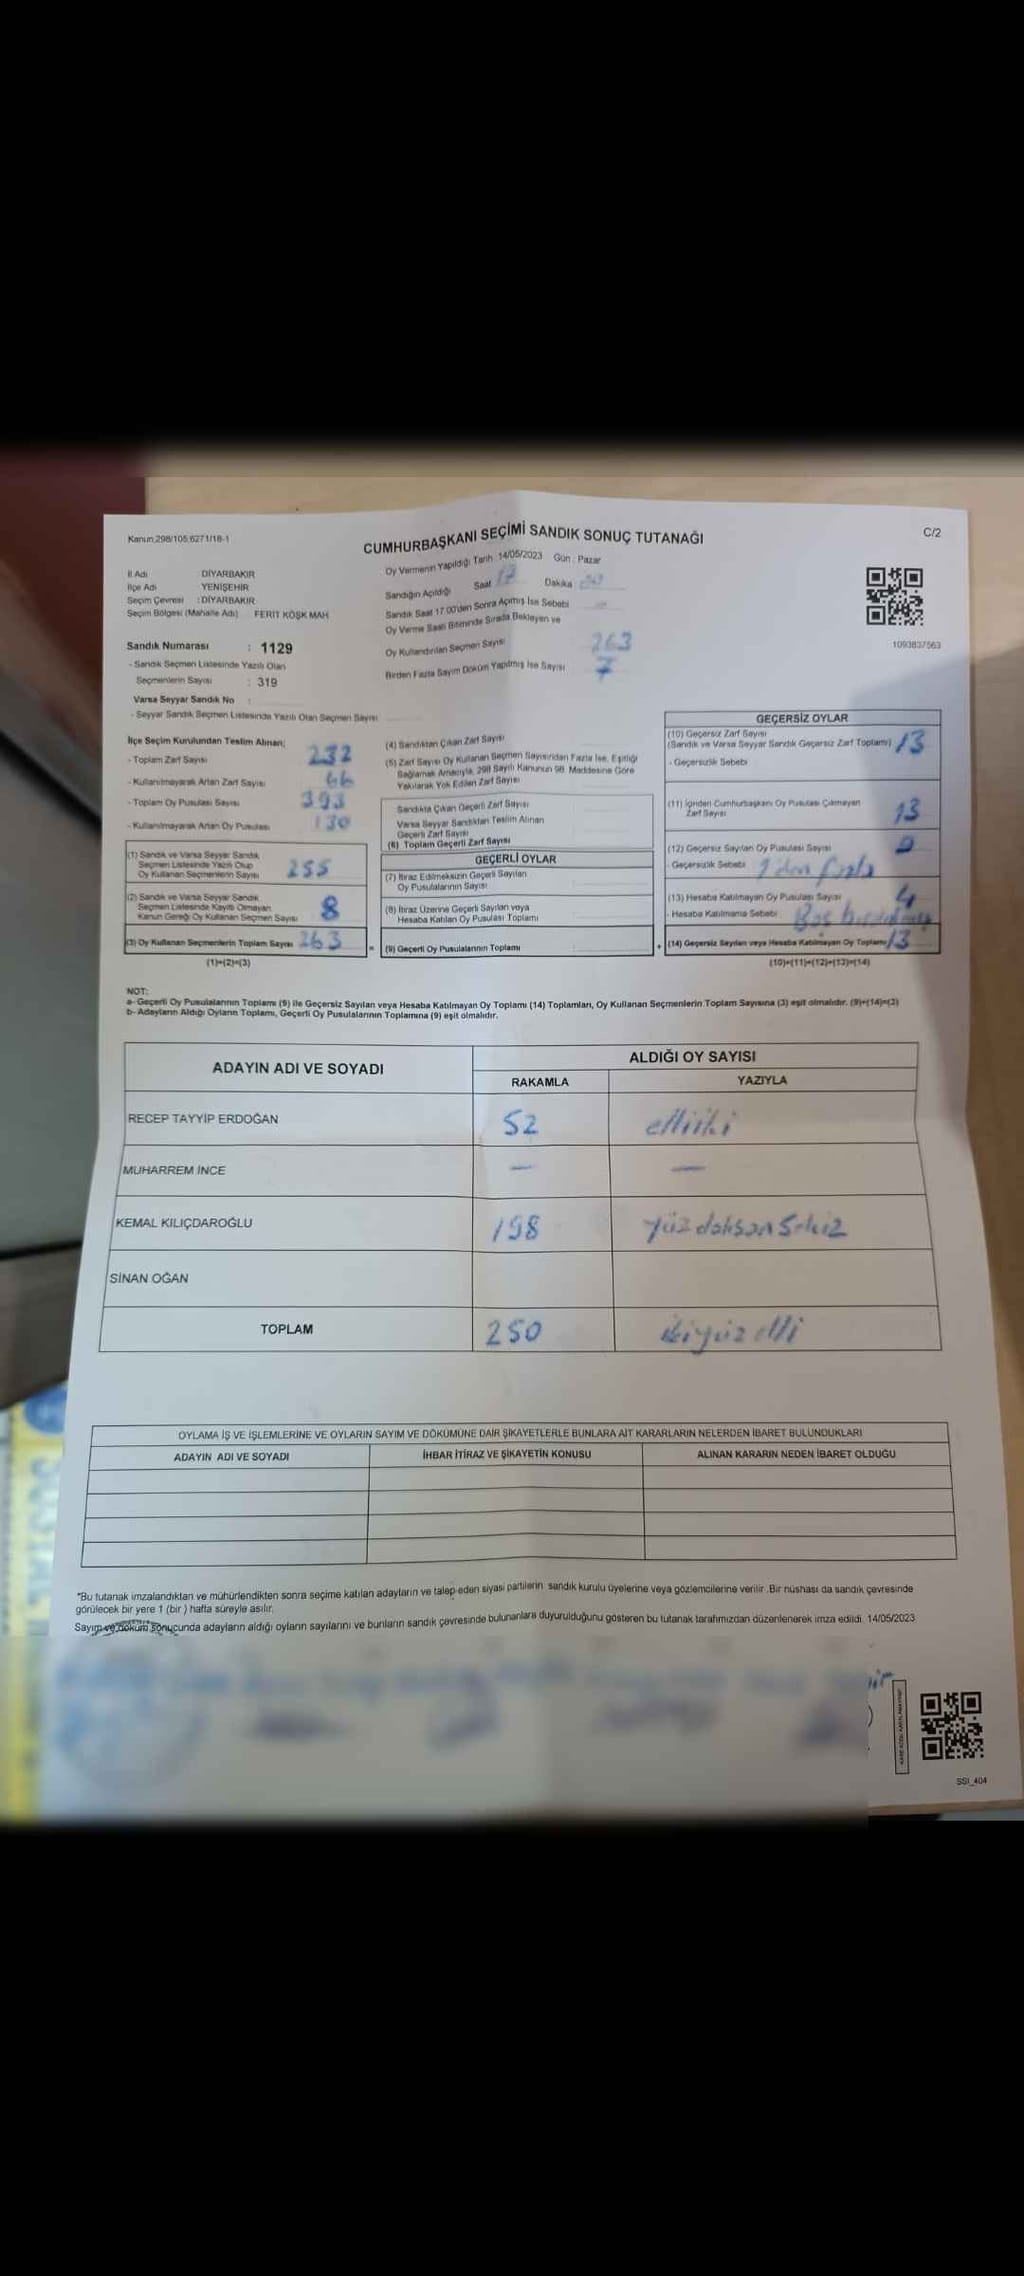 Kanun;298/105,6271/18-1
CUMHURBAŞKANI SEÇİMİ SANDIK SONUÇ TUTANAĞI
C/2
İl Adı DİYARBAKIR
İlçe Adı YENİŞEHİR
Seçim Çevresi : DİYARBAKIR
Seçim Bölgesi (Mahalle Adı) FERİT KÖŞK MAH
Oy Vermenin Yapıldığı Tarih 14/05/2023 Gün : Pazar
Sandığın Açıldığı Saat 17 Dakika
Sandık Saat 17:00'den Sonra Açımış İse Sebebi
Oy Verme Saati Bitiminde Sırada Bekleyen ve
Oy Kullandırılan Seçmen Sayısı 263
Birden Fazla Sayım Döküm Yapılmış İse Sayısı 7
1093837563
Sandık Numarası : 1129
- Sandık Seçmen Listesinde Yazılı Olan
Seçmenlerin Sayısı : 319
Varsa Seyyar Sandık No :
- Seyyar Sandık Seçmen Listesinde Yazılı Olan Seçmen Sayısı
İlçe Seçim Kurulundan Teslim Alınan;
- Toplam Zarf Sayısı 232
- Kullanılmayarak Artan Zarf Sayısı 66
- Toplam Oy Pusulası Sayısı 393
- Kullanılmayarak Artan Oy Pusulası 130
(1) Sandık ve Varsa Seyyar Sandık
Seçmen Listesinde Yazılı Olup
Oy Kullanan Seçmenlerin Sayısı 255
(2) Sandık ve Varsa Seyyar Sandık
Seçmen Listesinde Kayıtlı Olmayan
Kanun Gereği Oy Kullanan Seçmen Sayısı 8
(3) Oy Kullanan Seçmenlerin Toplam Sayısı 263
(1)+(2)=(3)
(4) Sandıktan Çıkan Zarf Sayısı
(5) Zarf Sayısı Oy Kullanan Seçmen Sayısından Fazla İse, Eşitliği
Sağlamak Amacıyla, 298 Sayılı Kanunun 98. Maddesine Göre
Yakılarak Yok Edilen Zarf Sayısı
Sandıkta Çıkan Geçerli Zarf Sayısı
Varsa Seyyar Sandıktan Teslim Alınan
Geçerli Zarf Sayısı
(6) Toplam Geçerli Zarf Sayısı
GEÇERLİ OYLAR
(7) İtiraz Edilmeksizin Geçerli Sayılan
Oy Pusulalarının Sayısı
(8) İtiraz Üzerine Geçerli Sayılan veya
Hesaba Katılan Oy Pusulası Toplamı
= (9) Geçerli Oy Pusulalarının Toplamı +
GEÇERSİZ OYLAR
(10) Geçersiz Zarf Sayısı
(Sandık ve Varsa Seyyar Sandık Geçersiz Zarf Toplamı) 13
- Geçersizlik Sebebi
(11) İçinden Cumhurbaşkanı Oy Pusulası Çıkmayan
Zarf Sayısı 13
(12) Geçersiz Sayılan Oy Pusulası Sayısı
- Geçersizlik Sebebi 1'den fazla
(13) Hesaba Katılmayan Oy Pusulası Sayısı 4
- Hesaba Katılmama Sebebi Boş
(14) Geçersiz Sayılan veya Hesaba Katılmayan Oy Toplamı 13
(10)+(11)+(12)+(13)=(14)
NOT:
a- Geçerli Oy Pusulalarının Toplamı (9) ile Geçersiz Sayılan veya Hesaba Katılmayan Oy Toplamı (14) Toplamları, Oy Kullanan Seçmenlerin Toplam Sayısına (3) eşit olmalıdır. (9)+(14)=(3)
b- Adayların Aldığı Oyların Toplamı, Geçerli Oy Pusulalarının Toplamına (9) eşit olmalıdır.
ADAYIN ADI VE SOYADI ALDIĞI OY SAYISI
RAKAMLA YAZIYLA
RECEP TAYYİP ERDOĞAN 52 elliiki
MUHARREM İNCE — —
KEMAL KILIÇDAROĞLU 198 yüzdoksansekiz
SİNAN OĞAN
TOPLAM 250 ikiyüzelli
OYLAMA İŞ VE İŞLEMLERİNE VE OYLARIN SAYIM VE DÖKÜMÜNE DAİR ŞİKAYETLERLE BUNLARA AİT KARARLARIN NELERDEN İBARET BULUNDUKLARI
ADAYIN ADI VE SOYADI İHBAR İTİRAZ VE ŞİKAYETİN KONUSU ALINAN KARARIN NEDEN İBARET OLDUĞU
*Bu tutanak imzalandıktan ve mühürlendikten sonra seçime katılan adayların ve talep eden siyasi partilerin sandık kurulu üyelerine veya gözlemcilerine verilir .Bir nüshası da sandık çevresinde
görülecek bir yere 1 (bir ) hafta süreyle asılır.
Sayım ve döküm sonucunda adayların aldığı oyların sayılarını ve bunların sandık çevresinde bulunanlara duyurulduğunu gösteren bu tutanak tarafımızdan düzenlenerek imza edildi. 14/05/2023
SSI_404